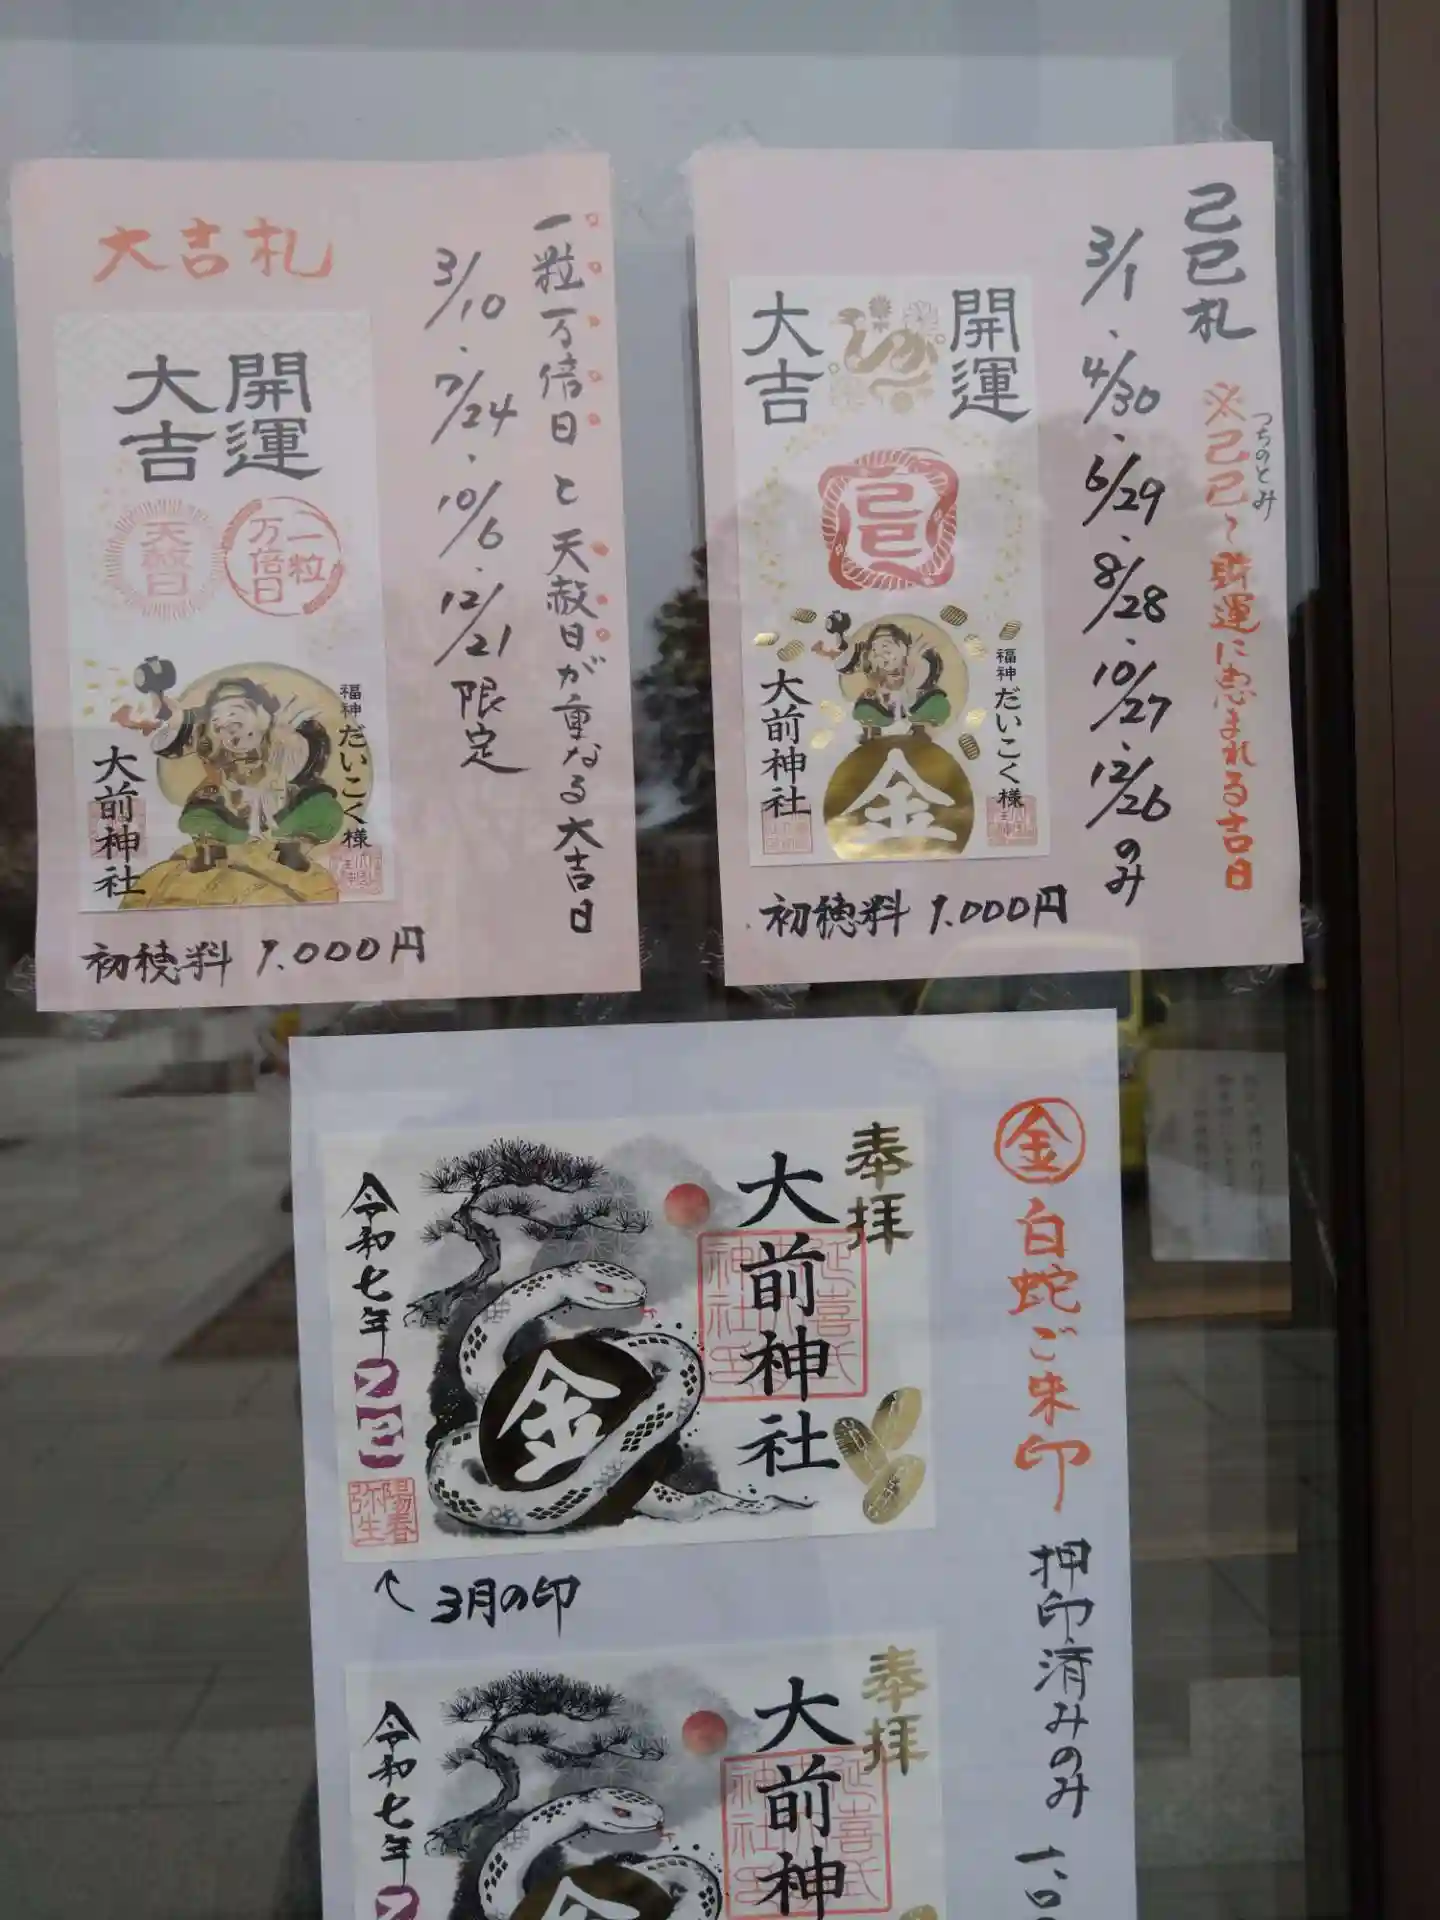 大吉札
開運
大吉
天赦日
一粒
万倍日
福神 だいこく様
大前神社
初穂料 1.000円
3/10・7/24・10/6・12/21限定
一粒万倍日と天赦日が重なる大吉日
己巳札
※己巳〜財運に恵まれる吉日
つちのとみ
3/1・4/30・6/29・8/28・10/27・12/26のみ
開運
大吉
己巳
福神 だいこく様
大前神社
金
初穂料 1.000円
金 白蛇ご朱印
押印済みのみ
奉拝
大前神社
延喜式
金
令和七年
陽春
弥生
3月の印
奉拝
大前神
延喜式
令和七年